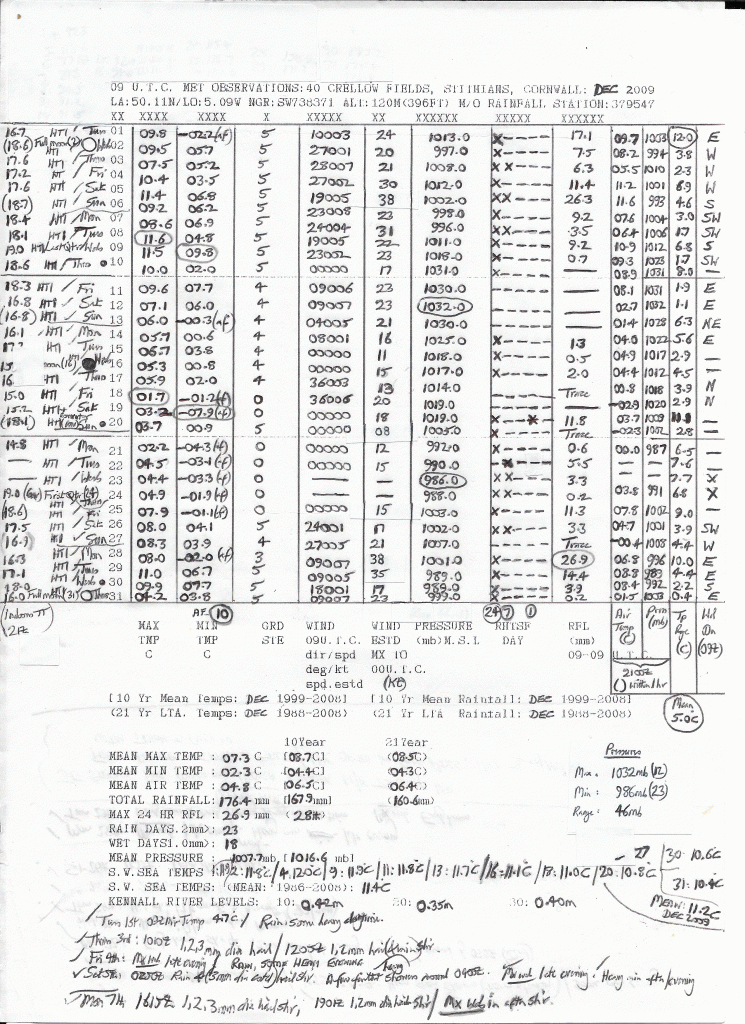 09 U.T.C. MET OBSERVATIONS:40 CRELLOW FIELDS, STITHIANS, CORNWALL: DEC 2009
LA:50.11N/LO:5.09W NGR:SW738371 ALT:120M(396FT) M/O RAINFALL STATION:379547
XX XXXX XXXX X XXXXX XX XXXXXX XXXXX XXXXXX
16.7 HTI / Tues 01 09.8 -02.2(af) 5 10003 24 1013.0 X---- 17.1 09.7 1003 12.0 E
(18.6) Full moon(2) 02 09.5 05.7 5 27001 20 997.0 X---- 7.5 08.2 994 3.8 W
17.6 HTI / Thurs 03 07.5 05.2 5 28007 21 1008.0 XX--- 6.3 05.5 1010 2.3 W
17.2 HTI / Fri 04 10.4 03.5 5 27002 30 1012.0 X---- 11.4 11.2 1001 6.9 W
17.6 HTI / Sat 05 11.4 06.8 5 19005 38 1002.0 XX--- 26.3 11.6 993 4.6 S
(18.7) HTI / Sun 06 09.2 06.2 5 23008 23 998.0 X---- 9.2 07.6 1004 3.0 SW
18.4 HTI / Mon 07 08.6 06.9 5 24004 31 996.0 XX--- 3.5 06.4 1006 1.7 SW
18.1 HTI / Tues 08 11.6 04.8 5 19005 22 1011.0 X---- 9.2 10.9 1012 6.8 S
19.0 HTI 09 11.5 09.8 5 23002 23 1018.0 X---- 0.7 09.3 1023 1.7 SW
18.6 HTI / Thurs 10 10.0 02.0 5 00000 17 1031.0 X---- — 08.9 1031 8.0 —
18.3 HTI / Fri 11 09.6 07.7 4 09006 23 1030.0 ----- — 08.1 1031 1.9 E
16.8 HTI / Sat 12 07.1 06.0 4 09007 23 1032.0 ----- — 02.7 1032 1.1 E
(16.8) HTI / Sun 13 06.0 -00.3(af) 4 04005 21 1030.0 ----- — 01.4 1028 6.3 NE
16.1 HTI / Mon 14 05.7 00.6 4 08001 16 1025.0 X---- 1.3 04.0 1022 5.6 E
HTI / Tues 15 06.7 03.8 4 00000 11 1018.0 X---- 0.5 04.9 1017 2.9 —
HTI 16 05.3 00.8 4 00000 15 1017.0 X---- 2.0 04.4 1012 4.5 —
16. HTI / Thurs 17 05.9 02.0 4 36003 13 1014.0 ----- Trace 00.8 1018 3.9 N
15.0 HTI / Fri 18 01.7 -01.2(af) 0 36006 20 1019.0 ----- — -02.9 1020 2.9 N
15.2 HTI / Sat 19 03.2 -07.9(af) 0 00000 18 1019.0 X--X- 11.8 03.7 1009 —
(18.1) HTI Sun 20 03.7 00.9 5 00000 08 1005.0 ----- Trace -02.3 1002 2.8 —
14.8 HTI / Mon 21 02.2 -04.3(af) 0 00000 12 992.0 ----- 0.6 00.0 987 6.5 —
— — / Tues 22 04.5 -03.1(af) 0 00000 15 990.0 -X--- 5.5 — — 7.6 —
— — / Weds 23 04.4 -03.3(af) 0 — — 986.0 ----- 3.3 — — 2.7 X
First Qtr(24) 24 04.9 -01.9(af) 0 — — 988.0 ----- 0.2 03.8 991 6.8 X
(18.6) HTI 25 07.9 -01.1(af) 0 00000 15 1003.0 X---- 11.3 07.8 1002 9.0 —
17.5 HTI / Sat 26 08.0 04.1 5 24001 17 1002.0 XX--- 3.3 04.7 1001 3.9 SW
(16.9) HTI / Sun 27 08.3 03.9 4 27005 21 1007.0 ----- Trace -00.4 1008 4.4 W
16.3 HTI / Mon 28 08.0 -02.0(af) 3 09007 38 1001.0 X---- 26.9 06.8 996 10.0 E
17.1 HTI / Tues 29 11.0 06.7 5 09005 35 989.0 X---- 14.4 08.8 983 4.4 E
18.0 HTI / Weds 30 09.9 07.7 5 18001 17 989.0 X---- 3.9 08.4 992 2.2 S
16.0 Full moon(31) Thurs 31 04.2 03.8 5 09007 23 999.0 X---- 0.2 01.5 1003 0.4 E
AF 10 24 7 1
MAX MIN GRD WIND WIND PRESSURE RHTSF RFL
TMP TMP STE 09U.T.C. ESTD (mb)M.S.L DAY (mm)
C C dir/spd MX 10 09-09 U.T.C.
deg/kt 00U.T.C.
spd.estd (Kt)
Air Temp (C) Press (mb) Tp Rge (C) Wd Dn (09z)
2100z
() within 1hr
Mean 5.0C
[10 Yr Mean Temps: DEC 1999-2008] [10 Yr Mean Rainfall: DEC 1999-2008]
(21 Yr LTA. Temps: DEC 1988-2008) (21 Yr LTA Rainfall: DEC 1988-2008)
10Year 21Year
MEAN MAX TEMP : 07.3 C [08.7C] (08.5C)
MEAN MIN TEMP : 02.3 C [04.4C] (04.3C)
MEAN AIR TEMP : 04.8 C [06.5C] (06.4C)
TOTAL RAINFALL: 176.4 mm [167.9mm] (160.6mm)
MAX 24 HR RFL : 26.9 mm (28th)
RAIN DAYS.2mm>: 23
WET DAYS1.0mm>: 18
MEAN PRESSURE : 1007.7mb [1016.6 mb]
Pressures
Max. 1032mb (12)
Min: 986mb (23)
Range: 46mb
S.W. SEA TEMPS 2: 11.8°C/4: 12.0°C/9: 11.9°C/11: 11.8°C/13: 11.7°C/16: 11.1°C/18: 11.0°C/20: 10.8°C
27 / 30: 10.6C
31: 10.4C
MEAN: 11.2C
DEC 2009
S.W. SEA TEMPS: (MEAN:1986-2008): 11.4C
KENNALL RIVER LEVELS: 10: 0.42m 20: 0.35m 30: 0.40m
/ Tues 1st: 09z Air Temp 4.7C / Rain, some heavy
/ Thurs 3rd: 1010z 1,2,3mm dia hail / 1205z 1,2mm hail
/ Fri 4th: late evening / RAIN, SOME HEAVY EVENING
late evening / Heavy rain aftn/evening
/ Mon 7th 1615z 1,2,3mm dia hail shr, 1901z 1,2mm dia hail shr / Mx wind in aftn shr.